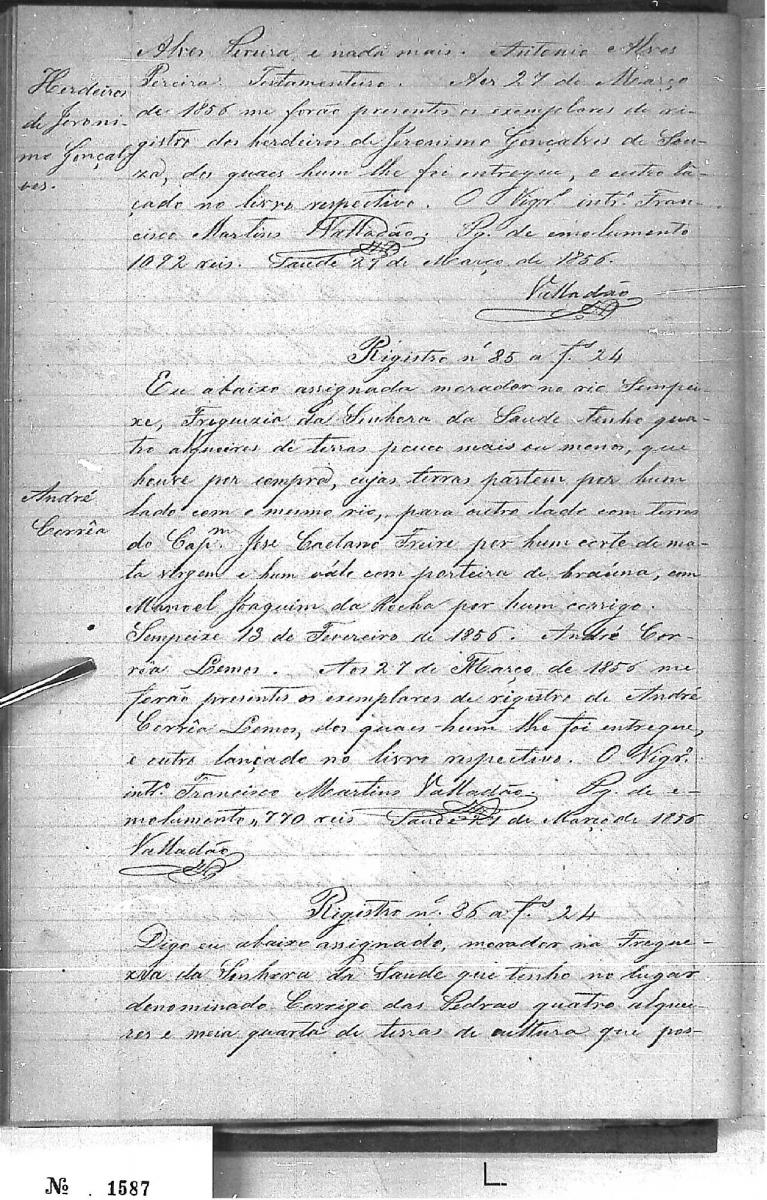 Alves Pereira e nada mais. Antonio Alves
Pereira. Testamenteiro. Aos 27 de Março
de 1856 me forão presentes os exemplares de re-
gistro dos herdeiros de Jeronimo Gonçalves de Sou-
za, dos quaes hum lhe foi entregue, e outro lan-
çado no livro respectivo. O Vigrº. intº. Fran-
cisco Martins Valladão. Pg. de emolumento
1092 reis. Saude 27 de Março de 1856.
Valladão
Herdeiros
de Jeroni-
mo Gonçal-
ves.
Registro nº 85 a fs 24
Eu abaixo assignada morador no rio Sempei-
xe, Freguezia da Senhora da Saude tenho qua-
tro alqueires de terras pouco mais ou menos, que
houve por compra, cujas terras partem por hum
lado com o mesmo rio, para outro lado com terras
do Capm. Jose Caetano Freire por hum corte de ma-
ta virgem e hum vále com porteira de braúna, com
Manoel Joaquim da Rocha por hum corrigo.
Sempeixe 13 de Fevereiro de 1856. André Cor-
rêa Lemos. Aos 27 de Março de 1856 me
forão presentes os exemplares de registro de André
Corrêa Lemos, dos quaes hum lhe foi entregue,
e outro lançado no livro respectivo. O Vigrº.
intº. Francisco Martins Valladão. Pg. de e-
molumento, 770 reis Saude 27 de Março de 1856
Valladão
André
Corrêa
Registro nº. 86 a fs 24
Digo eu abaixo assignado, morador na Fregue-
zia da Senhora da Saude que tenho no lugar
denominado Corrigo das Pedras quatro alquei-
res e meia quarta de terras de cultura que pos-
Nº . 1587
L.